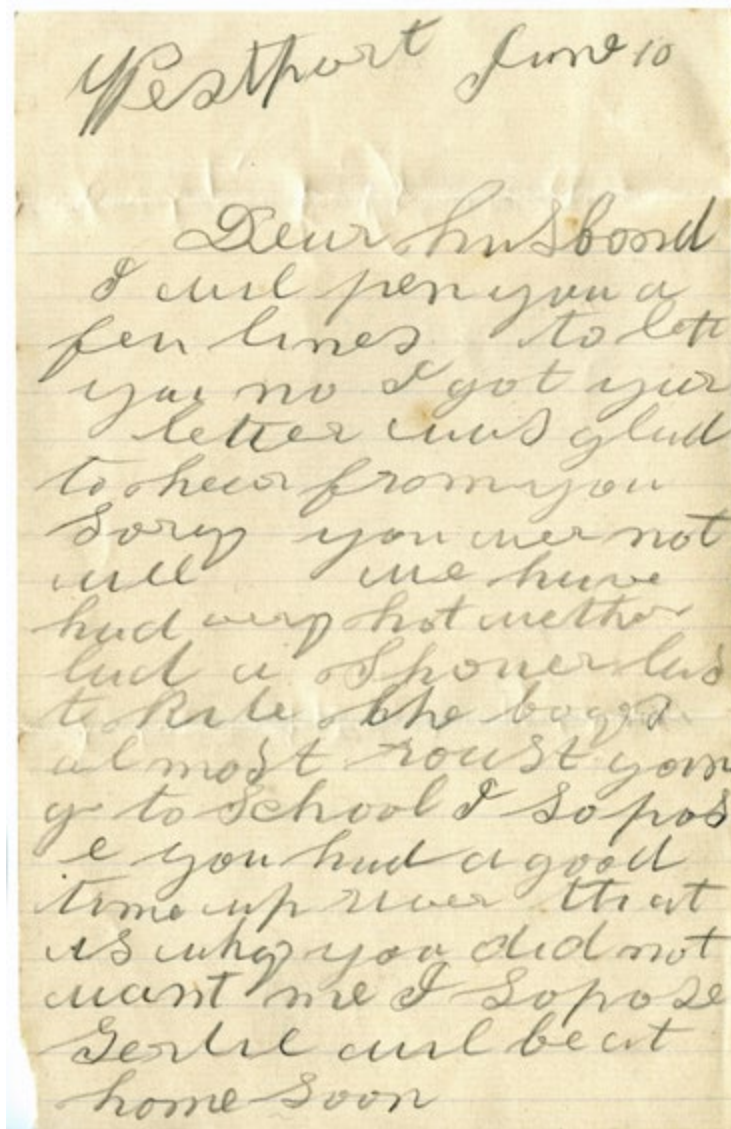 Westport June 10
Dear husbond
I will pen you a
few lines to lett
you no I got your
letter was glad
to hear from you
sory you wer not
well we have
had very hot wether
had a shouer las
te the boys
almost roust
go to School I Sopos
e you had a good
time up river that
is why you did not
want me I Sopose
Gertie will be at
home soon